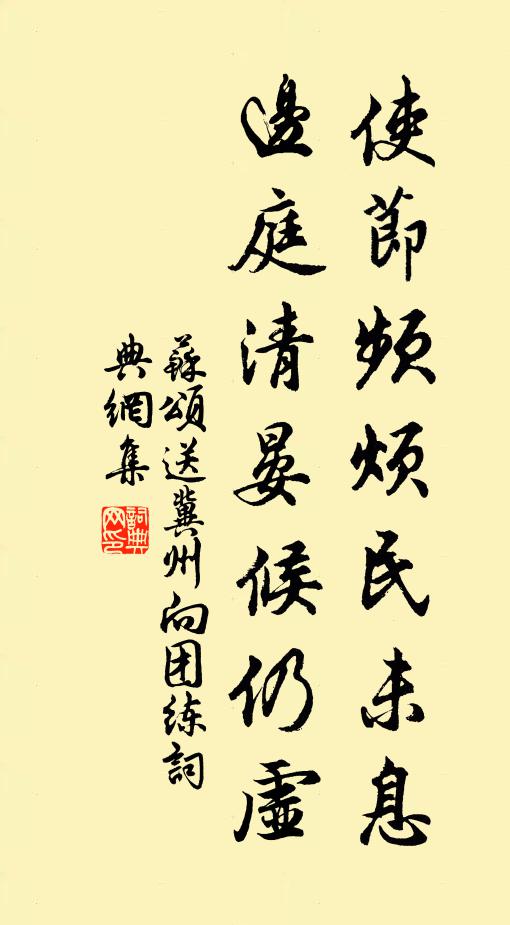 使節頻煩民未息
邊庭清晏候仍虛
蘇頌送冀州向团练詞
典網集
詞典
网印